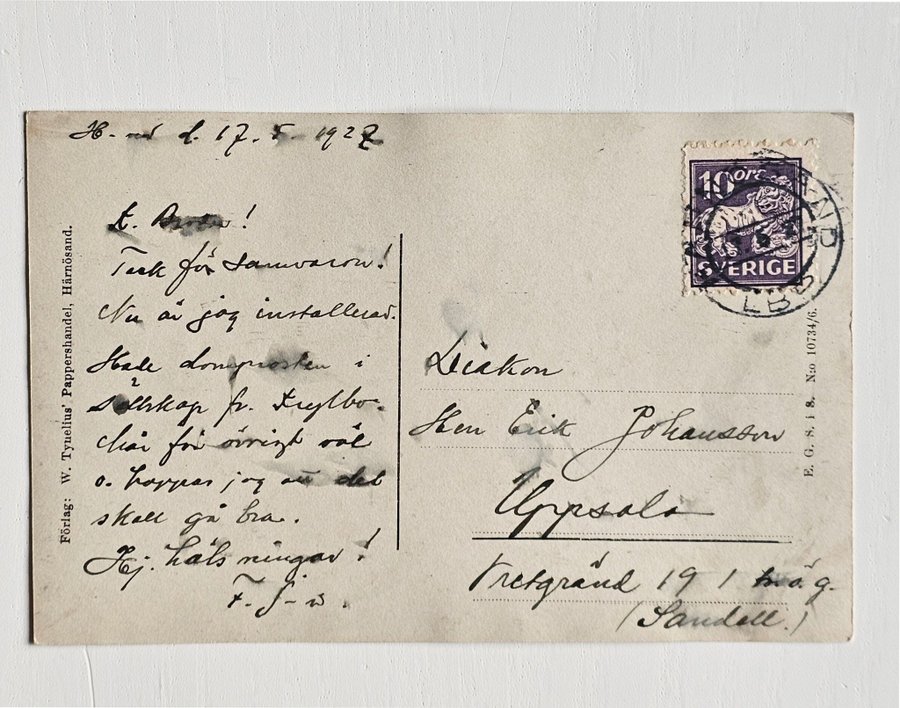 H-nd d. 17. 5. 1927
Tack för samvaron!
Nu är jag installerad.
Hade domprosten i
sällskap fr. Krylbo.
har för övrigt väl
o. hoppas jag att det
skall gå bra.
Hj. hälsningar!
F. J-n.
Förlag: W. Tynelius' Pappershandel, Härnösand.
10 öre
SVERIGE
LBS
Diakon
Herr Erik Johansson
Uppsala
Vretgränd 19 1 tr. ö. g.
(Sandell.)
E. G. S. i S. N:o 10734/6.